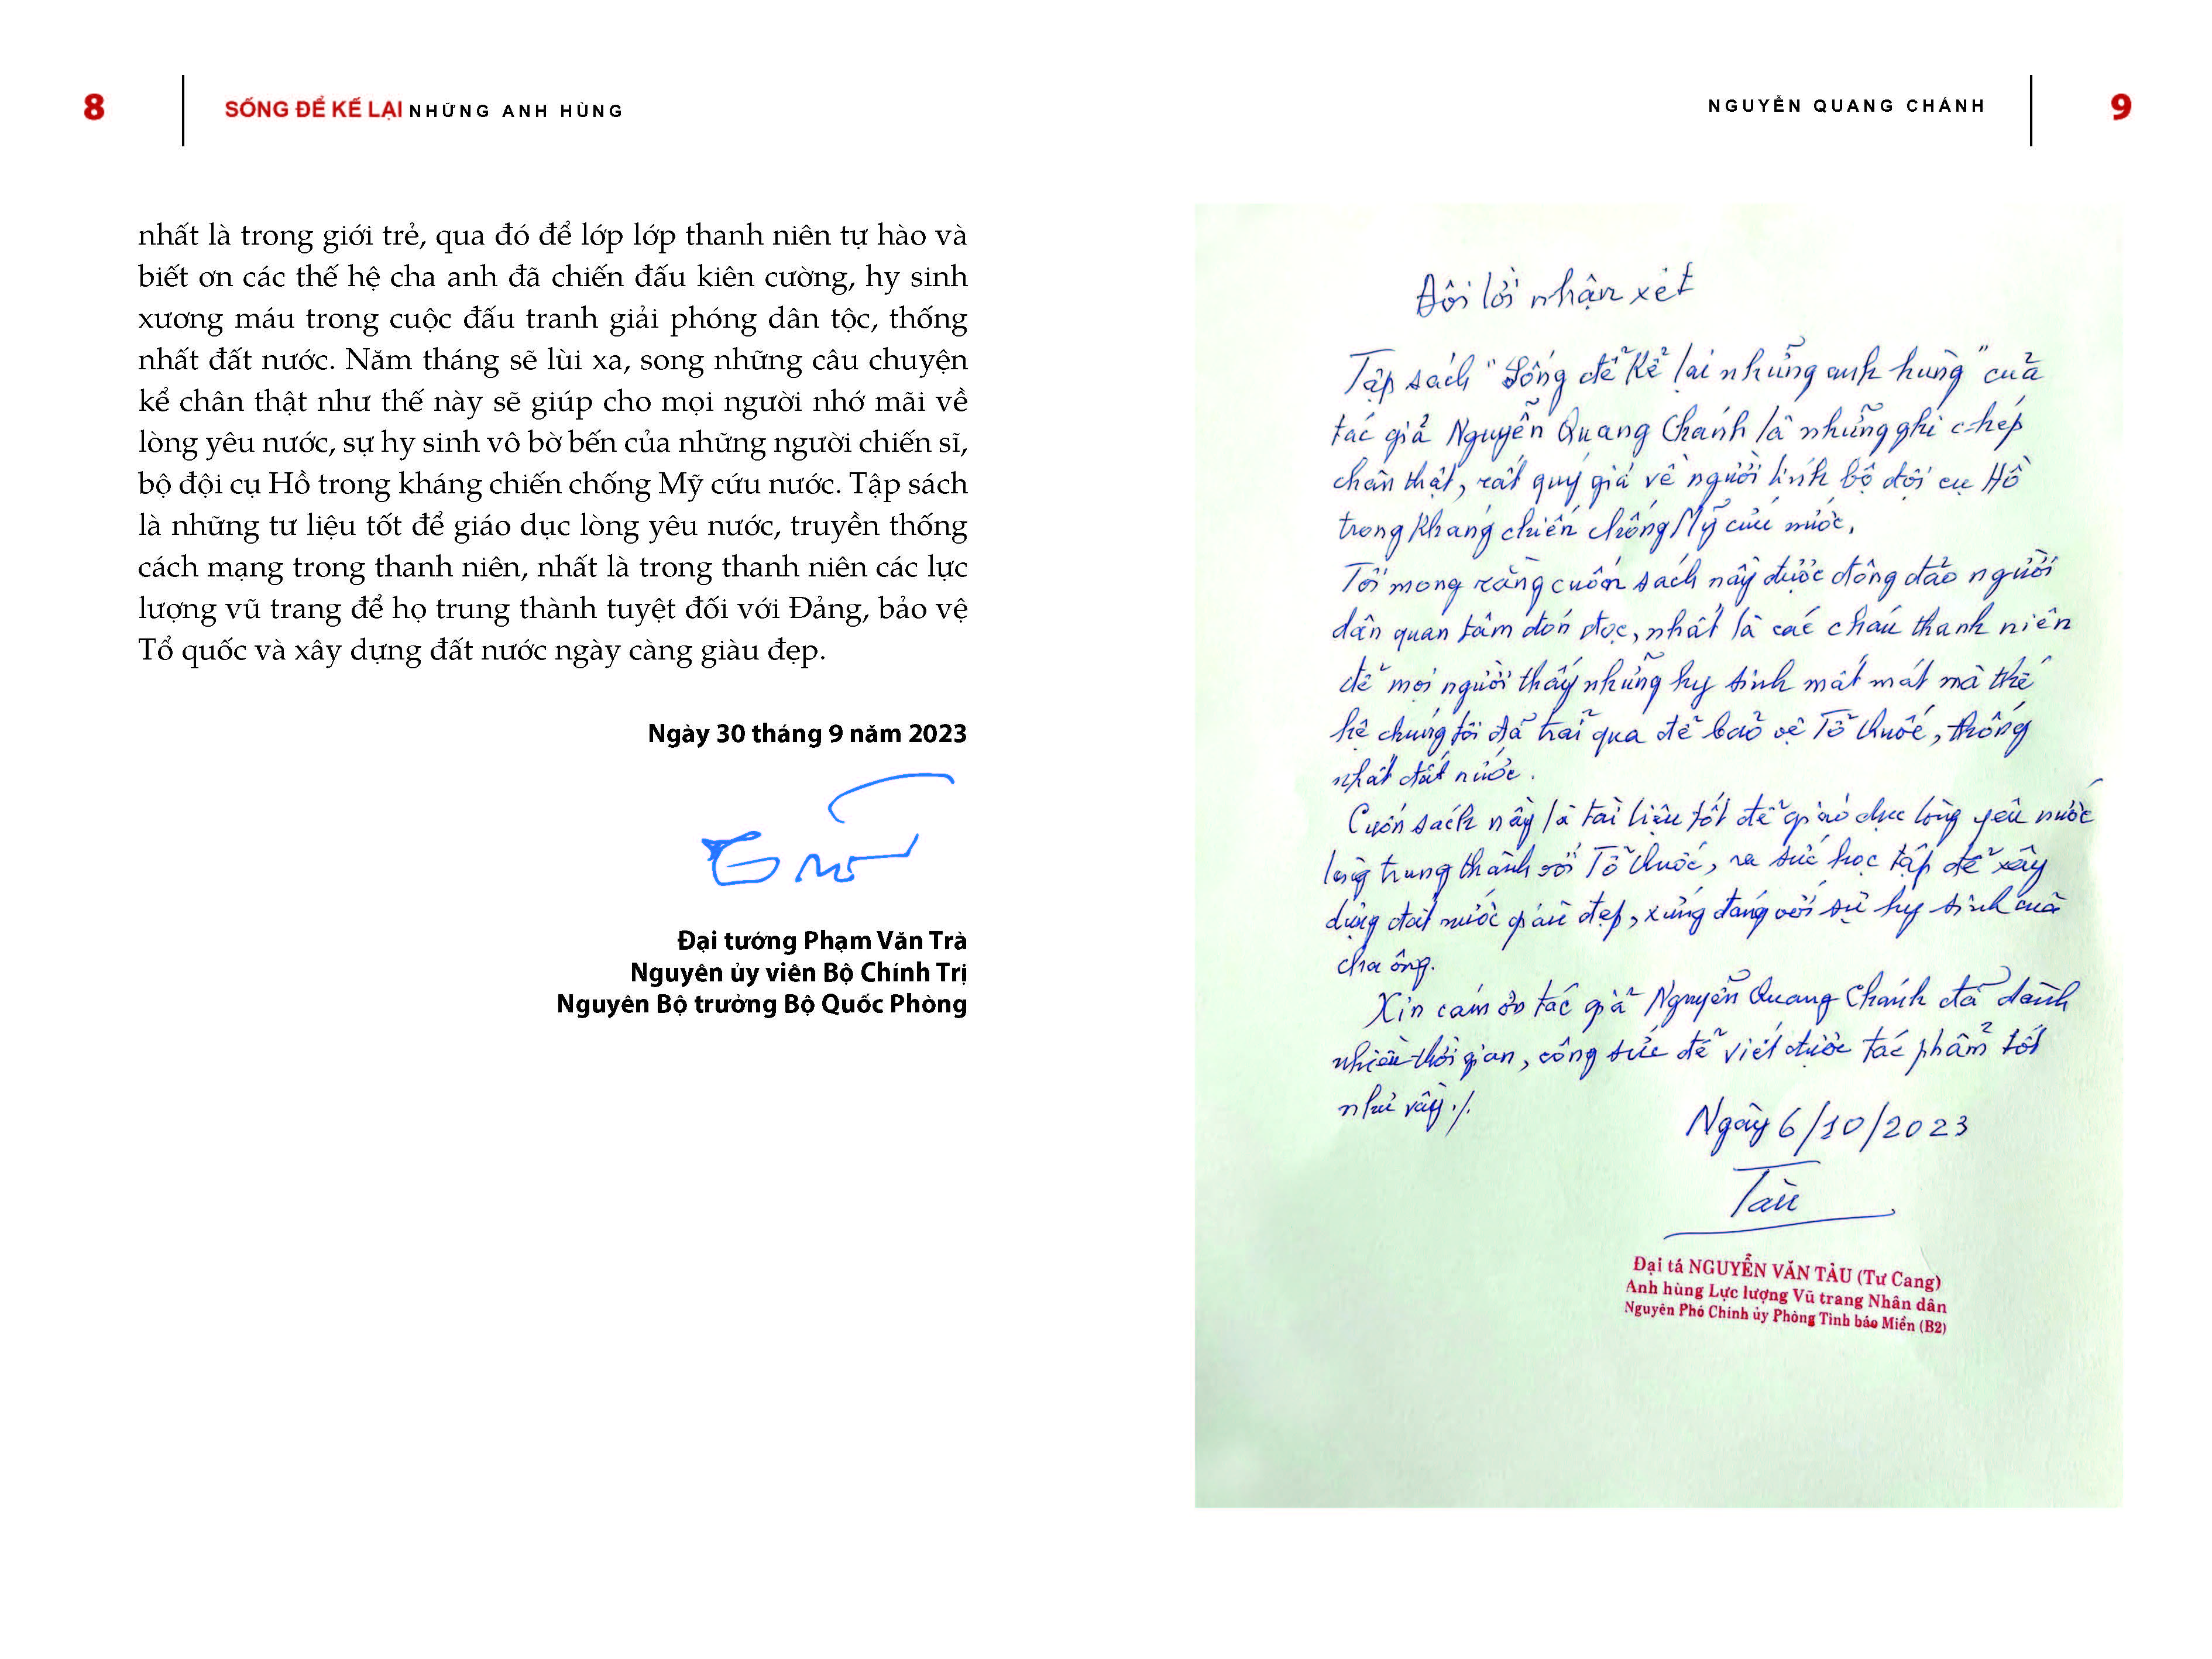 8
SỐNG ĐỂ KỂ LẠI NHỮNG ANH HÙNG
nhất là trong giới trẻ, qua đó để lớp lớp thanh niên tự hào và
biết ơn các thế hệ cha anh đã chiến đấu kiên cường, hy sinh
xương máu trong cuộc đấu tranh giải phóng dân tộc, thống
nhất đất nước. Năm tháng sẽ lùi xa, song những câu chuyện
kể chân thật như thế này sẽ giúp cho mọi người nhớ mãi về
lòng yêu nước, sự hy sinh vô bờ bến của những người chiến sĩ,
bộ đội cụ Hồ trong kháng chiến chống Mỹ cứu nước. Tập sách
là những tư liệu tốt để giáo dục lòng yêu nước, truyền thống
cách mạng trong thanh niên, nhất là trong thanh niên các lực
lượng vũ trang để họ trung thành tuyệt đối với Đảng, bảo vệ
Tổ quốc và xây dựng đất nước ngày càng giàu đẹp.
Ngày 30 tháng 9 năm 2023
Đại tướng Phạm Văn Trà
Nguyên ủy viên Bộ Chính Trị
Nguyên Bộ trưởng Bộ Quốc Phòng
NGUYỄN QUANG CHÁNH
9
Đôi lời nhận xét
Tập sách "Sống để kể lại những anh hùng" của
tác giả Nguyễn Quang Chánh là những ghi chép
chân thật, rất quý giá về người lính bộ đội cụ Hồ
trong kháng chiến chống Mỹ cứu nước.
Tôi mong rằng cuốn sách này được đông đảo người
dân quan tâm đón đọc, nhất là các cháu thanh niên
để mọi người thấy những hy sinh mất mát mà thế
hệ chúng tôi đã trải qua để bảo vệ Tổ Quốc, thống
nhất đất nước.
Cuốn sách này là tài liệu tốt để giáo dục lòng yêu nước
lòng trung thành với Tổ Quốc, ra sức học tập để xây
dựng đất nước giàu đẹp, xứng đáng với sự hy sinh của
cha ông.
Xin cám ơn tác giả Nguyễn Quang Chánh đã dành
nhiều thời gian, công sức để viết được tác phẩm tốt
như vậy./.
Ngày 6/10/2023
Tàu
Đại tá NGUYỄN VĂN TÀU (Tư Cang)
Anh hùng Lực lượng Vũ trang Nhân dân
Nguyên Phó Chính ủy Phòng Tình báo Miền (B2)